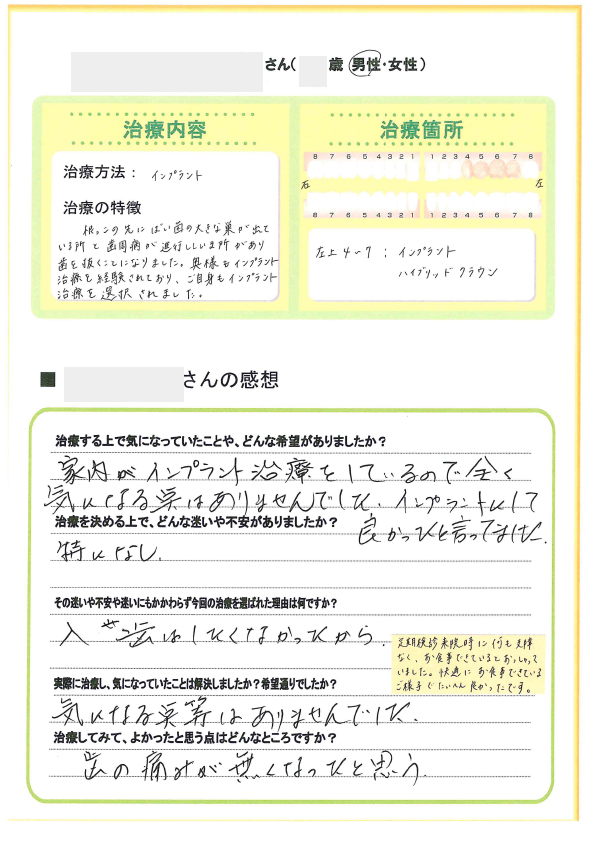 さん( 歳 男性・女性)
治療内容
治療方法： インプラント
治療の特徴
根っこの先にばい菌の大きな巣が出て
いる所と歯周病が進行している所があり
歯を抜くことになりました。奥様もインプラント
治療を経験されており、ご自身もインプラント
治療を選択されました。
治療箇所
8 7 6 5 4 3 2 1 1 2 3 4 5 6 7 8
右 左
8 7 6 5 4 3 2 1 1 2 3 4 5 6 7 8
左上4〜7 : インプラント
ハイブリッドクラウン
■ さんの感想
治療する上で気になっていたことや、どんな希望がありましたか？
家内がインプラント治療をしているので全く
気になる事はありませんでした. インプラントにして
良かったと言ってました.
治療を決める上で、どんな迷いや不安がありましたか？
特になし.
その迷いや不安や迷いにもかかわらず今回の治療を選ばれた理由は何ですか？
入せ歯はしたくなかったから.
定期検診来院時に何も支障
なく、お食事できているとおっしゃって
いました。快適にお食事できている
ご様子でたいへん良かったです。
実際に治療し、気になっていたことは解決しましたか？希望通りでしたか？
気になる事等はありませんでした.
治療してみて、よかったと思う点はどんなところですか？
歯の痛みが無くなったと思う.